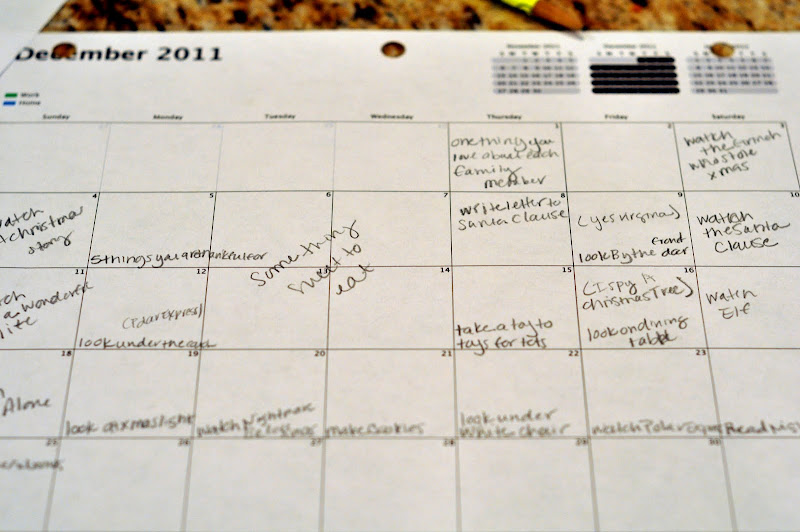 December 2011
November 2011
December 2011
Work
Home
Sunday
Monday
Tuesday
Wednesday
Thursday
Friday
Saturday
1
2
3
one thing you
love about each
family
member
watch
the Grinch
who stole
xmas
4
5
6
7
8
9
10
watch
christmas
story
5 things you are thankful for
Something
sweet to
eat
write letter to
Santa Clause
(yes virginia)
look By the
front
door
watch
the Santa
Clause
11
12
13
14
15
16
a wonderful
life
(Polar Express)
look under the
take a toy to
toys for tots
(I spy A
christmas Tree)
look on dining
table
watch
Elf
18
19
20
21
22
23
Alone
look at xmas lights
watch Nightmare
make cookies
look under
white chair
watch Polar
Read
25
26
27
28
29
30